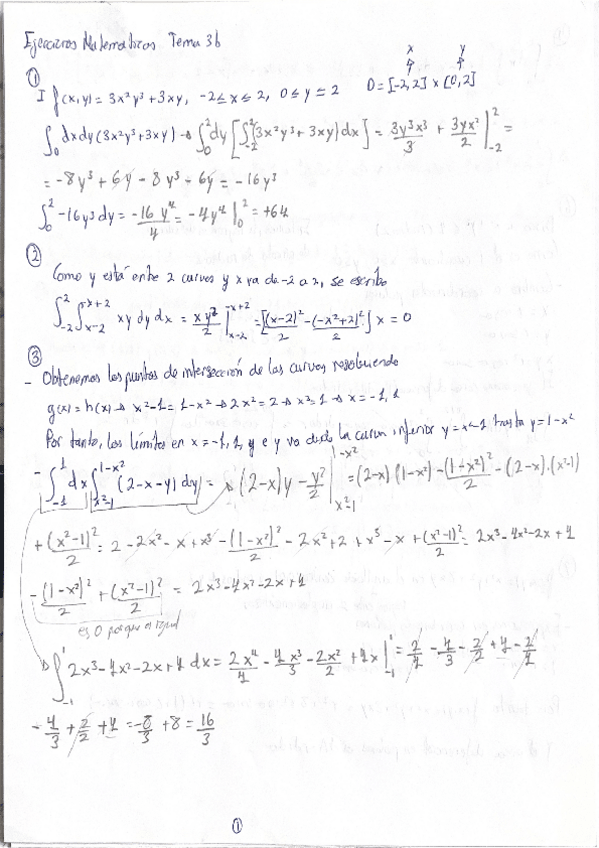 Ejercicios Matemáticas Tema 3b
①
x y
I f(x,y) = 3x²y³ + 3xy, -2 ≤ x ≤ 2, 0 ≤ y ≤ 2 D = [-2,2] x [0,2]
∫₀ dxdy (3x²y³+3xy) → ∫₀² dy [∫₋₂² (3x²y³ + 3xy) dx] = 3y³x³/3 + 3yx²/2 |₋₂² =
= -8y³ + 6y - 8y³ - 6y = -16y³
∫₀² -16y³ dy = -16 y⁴/4 = -4y⁴ |₀² = +64
②
Como y está entre 2 curvas y x va de -2 a 2, se escribe
∫₋₂² ∫ₓ₋₂^(-x+2) xy dy dx = xy²/2 |ₓ₋₂^(-x+2) = [(x-2)²/2 - (-x+2)²/2] x = 0
③
- Obtenemos los puntos de intersección de las curvas resolviendo
g(x) = h(x) → x²-1 = 1-x² → 2x² = 2 → x² = 1 → x = -1, 1
Por tanto, los límites en x = -1, 1, y e y va desde la curva inferior y = x²-1 hasta y = 1-x²
- ∫₋₁¹ dx ∫ₓ²₋₁^(1-x²) (2-x-y) dy = → (2-x)y - y²/2 |ₓ²₋₁^(1-x²) = (2-x)(1-x²) - (1-x²)²/2 - (2-x)·(x²-1)
+ (x²-1)²/2 = 2 - 2x² - x + x³ - (1-x²)²/2 - 2x² + 2 + x³ - x + (x²-1)²/2 = 2x³ - 4x² - 2x + 4
- (1-x²)²/2 + (x²-1)²/2 = 2x³ - 4x² - 2x + 4
es 0 porque es igual
→ ∫₋₁¹ 2x³ - 4x² - 2x + 4 dx = 2x⁴/4 - 4x³/3 - 2x²/2 + 4x |₋₁¹ = 2/4 - 4/3 - 2/2 + 4 - 2/4
- 4/3 + 2/2 + 4 = -8/3 + 8 = 16/3
①